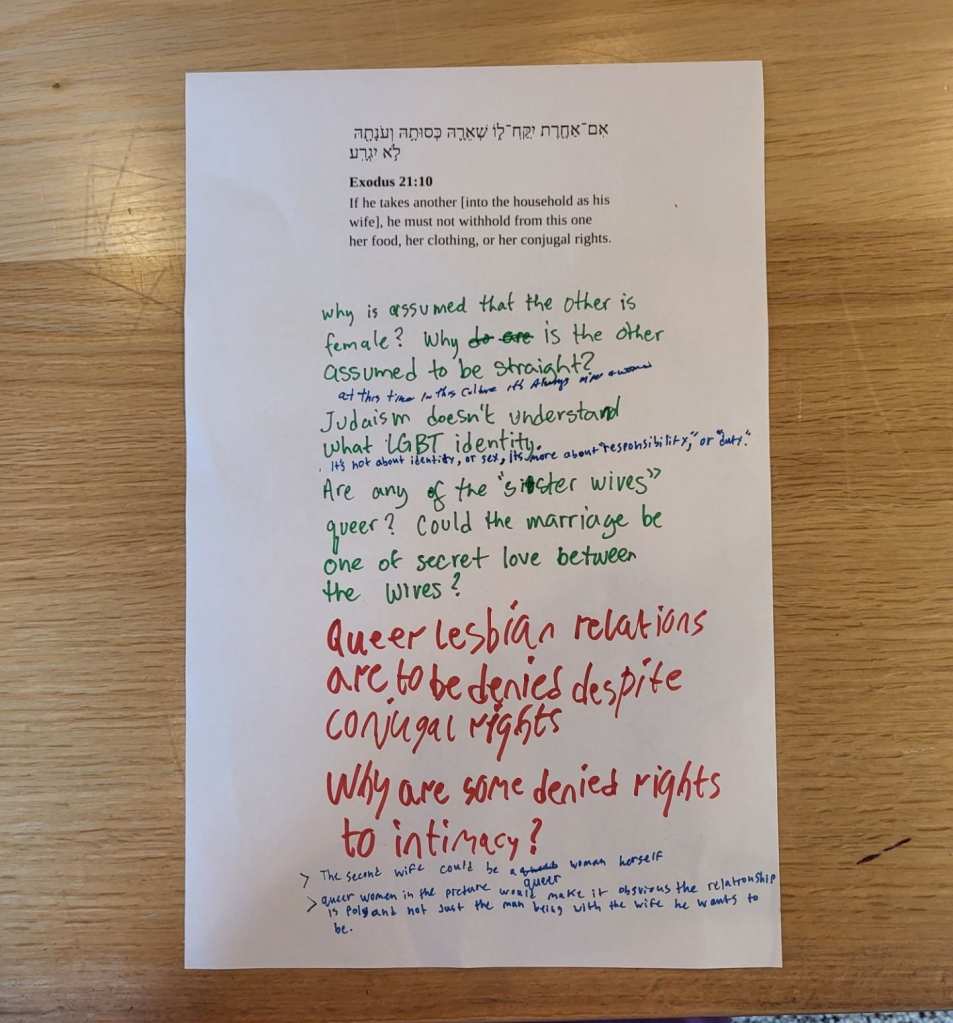 אִם־אַחֶרֶת יִקַּח־לוֹ שְׁאֵרָהּ כְּסוּתָהּ וְעֹנָתָהּ
לֹא יִגְרָע
Exodus 21:10
If he takes another [into the household as his
wife], he must not withhold from this one
her food, her clothing, or her conjugal rights.
why is assumed that the other is
female? Why do are is the other
assumed to be straight?
at this time in this culture it's always a woman
Judaism doesn't understand
what LGBT identity.
It's not about identity, or sex, its more about "responsibility," or "duty."
Are any of the "sister wives"
queer? Could the marriage be
one of secret love between
the wives?
Queer lesbian relations
are to be denied despite
conjugal rights
Why are some denied rights
to intimacy?
> The second wife could be a queer woman herself
> queer women in the picture would make it obvious the relationship
is poly and not just the man being with the wife he wants to
be.